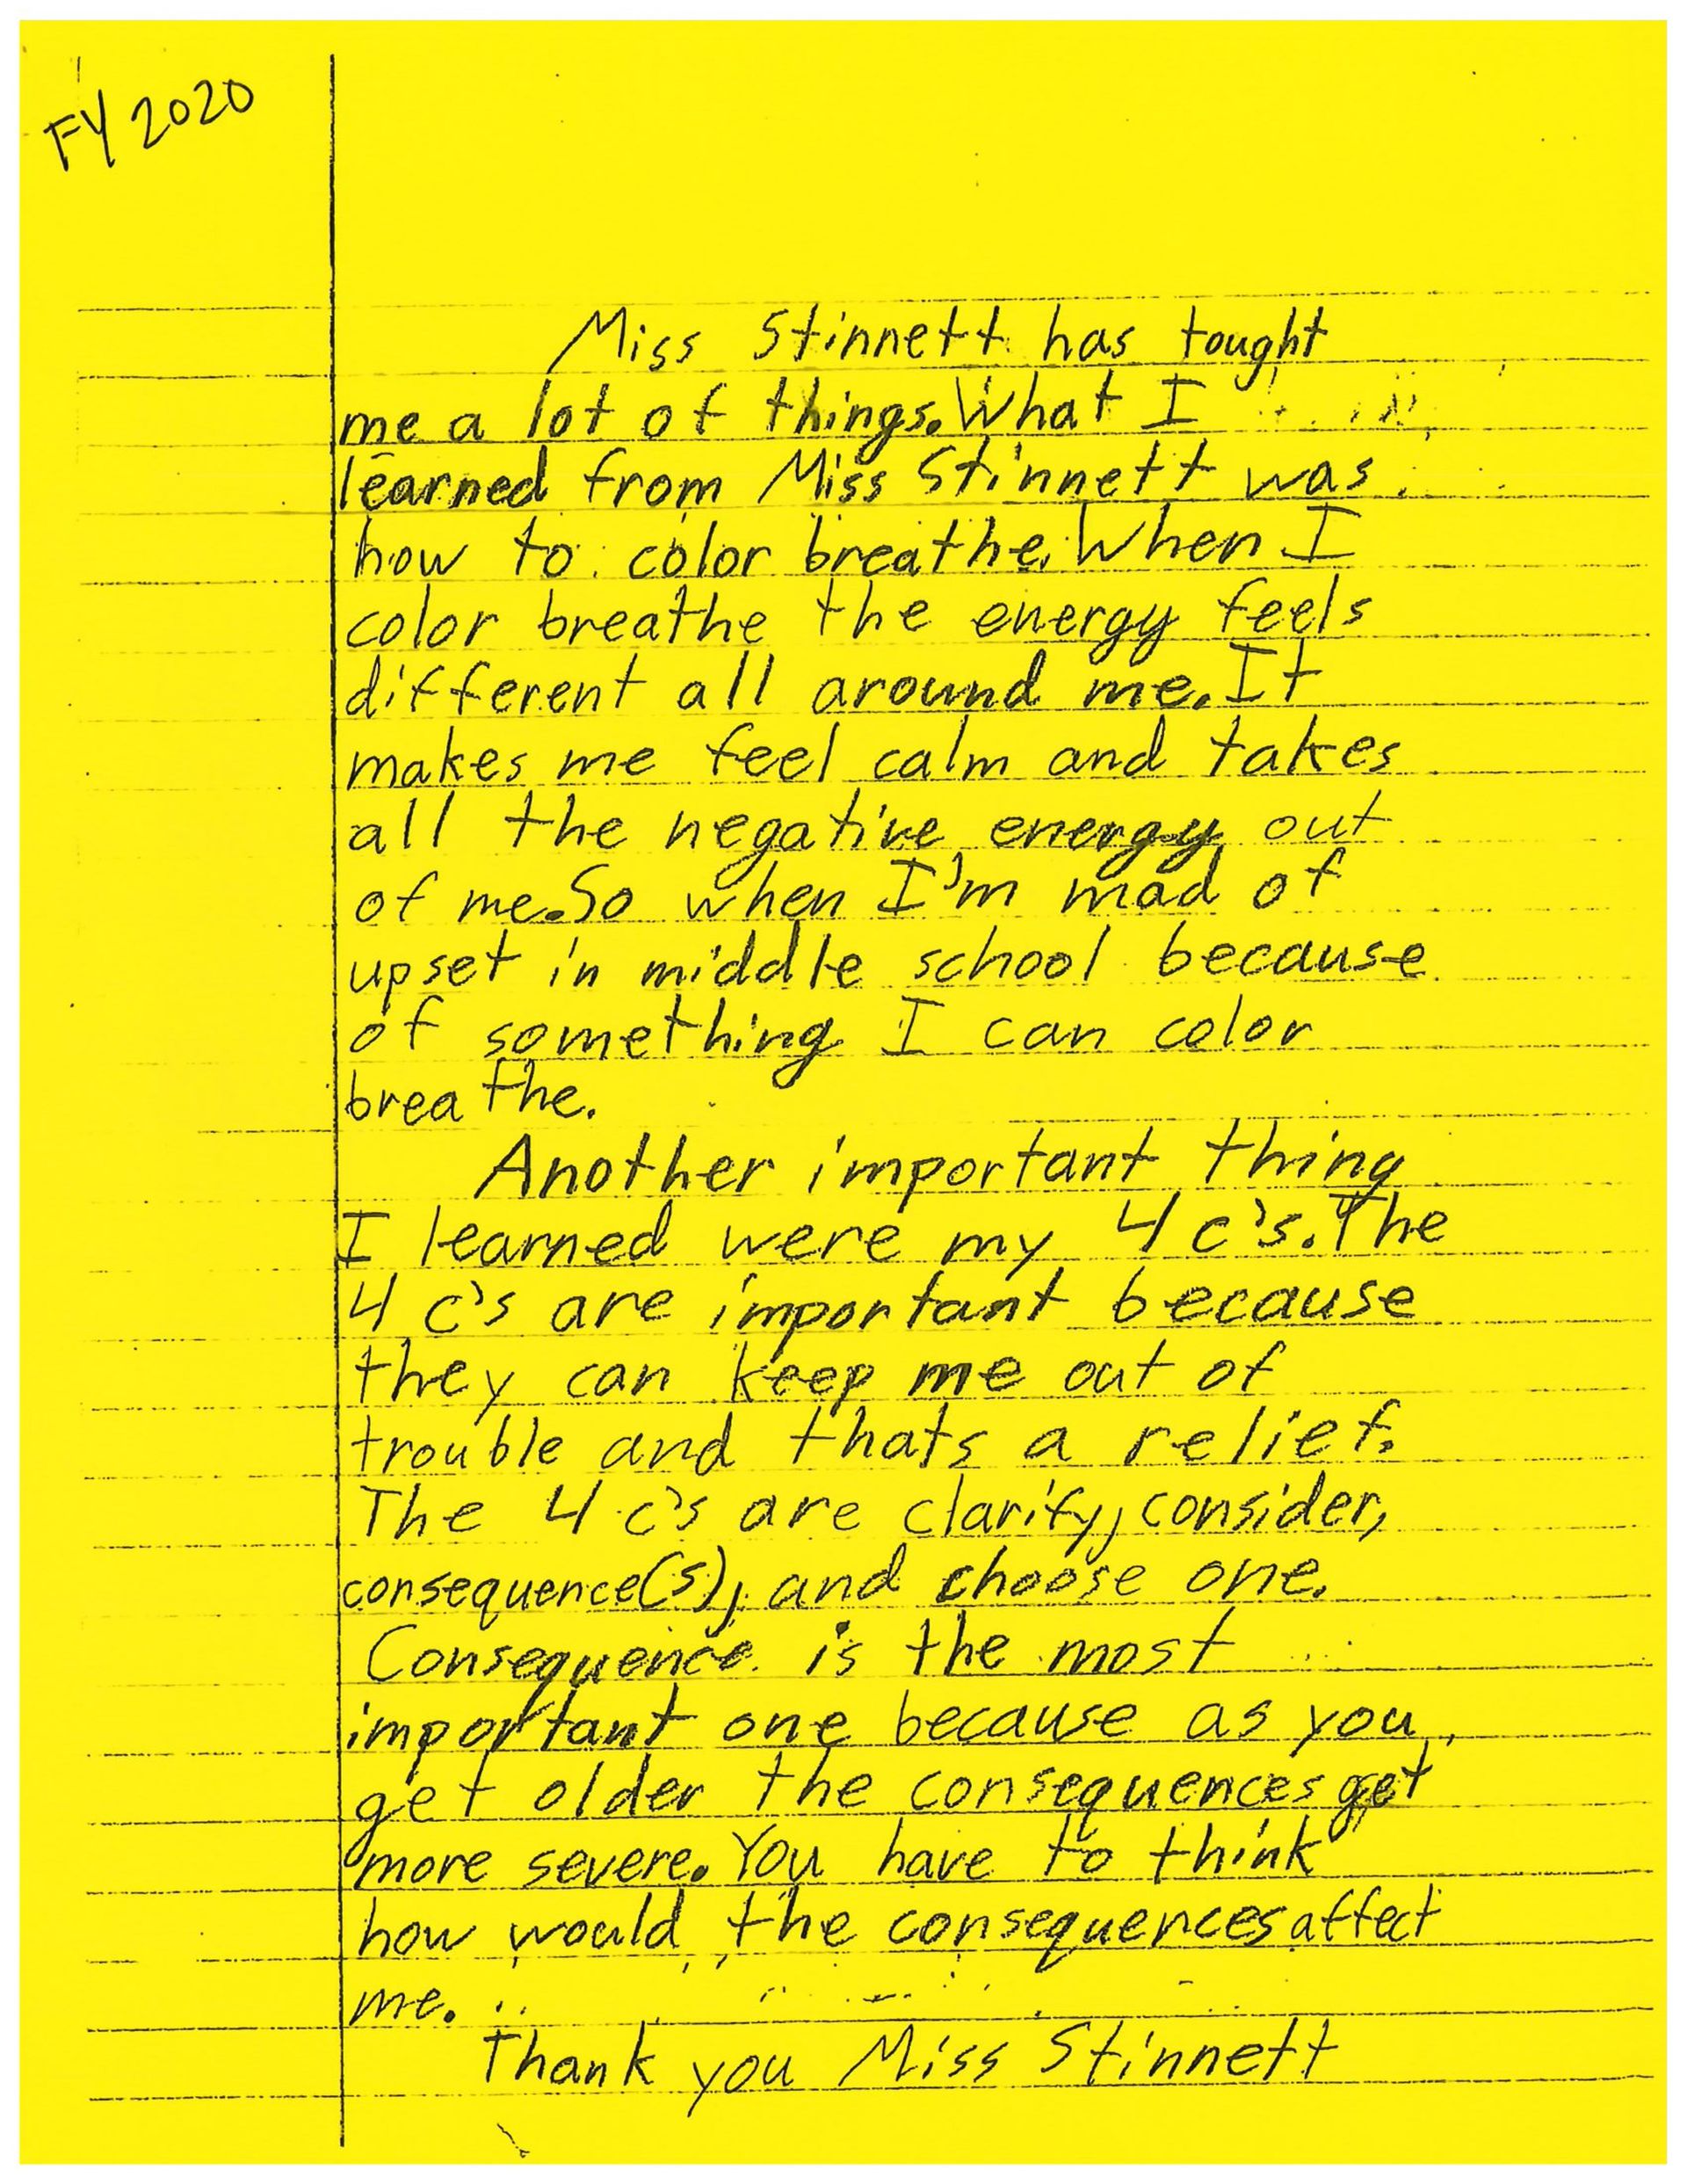 FY 2020
Miss Stinnett has tought
me a lot of things. What I
learned from Miss Stinnett was
how to color breathe. When I
color breathe the energy feels
different all around me. It
makes me feel calm and takes
all the negative energy out
of me. So when I'm mad of
upset in middle school because
of something I can color
breathe.
Another important thing
I learned were my 4 c's. The
4 c's are important because
they can keep me out of
trouble and thats a relief.
The 4 c's are clarify, consider,
consequence(s), and choose one.
Consequence is the most
important one because as you
get older the consequences get
more severe. You have to think
how would the consequences affect
me.
Thank you Miss Stinnett